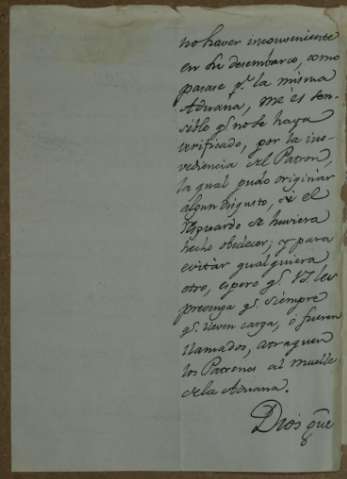 no haver inconveniente
en su desembarco, como
parase p.r la misma
Aduana, me es sen-
sible q.e no se haya
verificado, por la ino-
vediencia del Patron,
la qual pudo originar
algun disgusto, si el
Resguardo se huviera
hecho obedecer; y para
evitar qualquiera
otro, espero q.e V.S. les
prevenga q.e siempre
q.e lleven carga, ó fueren
llamados, atraquen
los Patrones al muelle
de la Aduana.
Dios gũe